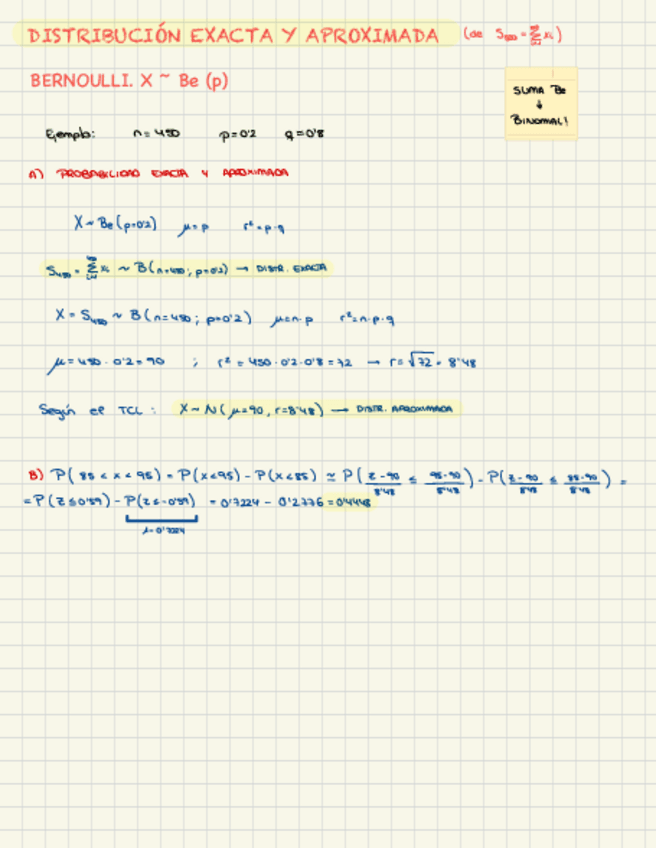 DISTRIBUCIÓN EXACTA Y APROXIMADA (de S₄₅₀ = Σ xᵢ)
BERNOULLI. X ~ Be (p)
SUMA Be
↓
BINOMIAL!
Ejemplo: n = 450 p = 0'2 q = 0'8
A) PROBABILIDAD EXACTA Y APROXIMADA
X ~ Be (p=0'2) μ = p σ² = p·q
S₄₅₀ = Σ xᵢ ~ B (n=450; p=0'2) → DISTR. EXACTA
X = S₄₅₀ ~ B (n=450; p=0'2) μ = n·p σ² = n·p·q
μ = 450 · 0'2 = 90 ; σ² = 450·0'2·0'8 = 72 → σ = √72 = 8'48
Según el TCL : X ~ N (μ=90, σ=8'48) → DISTR. APROXIMADA
B) P( 85 < x < 95) = P(x<95) - P(x<85) ≃ P( (z-90)/8'48 ≤ (95-90)/8'48 ) - P( (z-90)/8'48 ≤ (85-90)/8'48 ) =
= P (Z ≤ 0'59) - P(Z ≤ -0'59) = 0'7224 - 0'2776 = 0'4448
1-0'7224